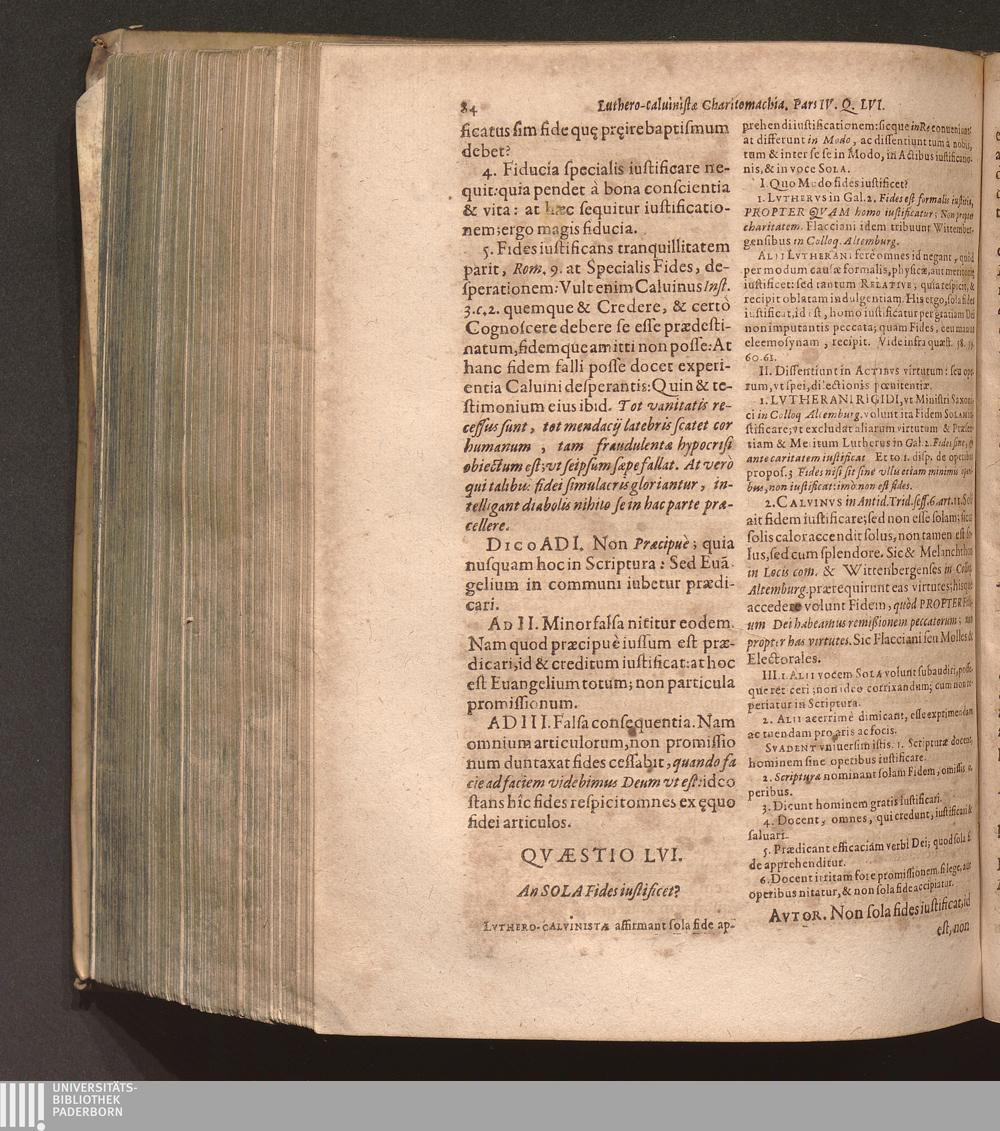 84 Luthero-caluinistæ Charitomachia. Pars IV. Q. LVI.
ficatus sim fide quę pręire baptismum
debet?
4. Fiducia specialis iustificare ne-
quit: quia pendet à bona conscientia
& vita: at hæc sequitur iustificatio-
nem; ergo magis fiducia.
5. Fides iustificans tranquillitatem
parit, Rom. 9. at Specialis Fides, de-
sperationem: Vult enim Caluinus Inst.
3.c.2. quemque & Credere, & certò
Cognoscere debere se esse prædesti-
natum, fidemque amitti non posse: At
hanc fidem falli posse docet experi-
entia Caluini desperantis: Quin & te-
stimonium eius ibid. Tot vanitatis re-
cessus sunt, tot mendacij latebris scatet cor
humanum, tam fraudulenta hypocrisi
obiectum est; vt seipsum sæpe fallat. At verò
qui talibus fidei simulacris gloriantur, in-
telligant diabolis nihilo se in hac parte præ-
cellere.
DICO AD I. Non Præcipuè; quia
nusquam hoc in Scriptura: Sed Euā-
gelium in communi iubetur prædi-
cari.
AD II. Minor falsa nititur eodem.
Nam quod præcipuè iussum est præ-
dicari, id & creditum iustificat: at hoc
est Euangelium totum; non particula
promissionum.
AD III. Falsa consequentia. Nam
omnium articulorum, non promissio
num duntaxat fides cessabit, quando fa
cie ad faciem videbimus Deum vt est: ideo
stans hîc fides respicit omnes ex ęquo
fidei articulos.
QVÆSTIO LVI.
An SOLA Fides iustificet?
LVTHERO-CALVINISTÆ affirmant sola fide ap-
prehendi iustificationem: sicque in Re conueniunt:
at differunt in Modo, ac dissentiunt tum à nobis,
tum & inter se se in Modo, in Actibus iustificatio-
nis, & in voce SOLA.
I. Quo Modo fides iustificet?
1. LVTHERVS in Gal. 2. Fides est formalis iustitia,
PROPTER QVAM homo iustificatur; Non propter
charitatem. Flacciani idem tribuunt Wittember-
gensibus in Colloq. Altemburg.
ALII LVTHERANI ferè omnes id negant, quòd
per modum causæ formalis, physicæ, aut meritoriæ
iustificet: sed tantum RELATIVE; quia respicit, &
recipit oblatam indulgentiam. His ergo, sola fides
iustificat, id est, homo iustificatur per gratiam Dei
non imputantis peccata; quam Fides, ceu manus
eleemosynam, recipit. Vide infra quæst. 58. 59.
60. 61.
II. Dissentiunt in ACTIBVS virtutum: seu ope-
rum, vt spei, dilectionis pœnitentiæ.
1. LVTHERANI RIGIDI, vt Ministri Saxoni-
ci in Colloq Altemburg. volunt ita Fidem SOLAM iu-
stificare; vt excludat aliarum virtutum & Præsen-
tiam & Meritum Lutherus in Gal. 2. Fides sine, &
ante caritatem iustificat Et to. 1. disp. de operibus
propos. 3 Fides nisi sit sine vllu etiam minimu operi-
bus, non iustificat: imò non est fides.
2. CALVINVS in Antid. Trid. sess. 6. art. 11. Sol
ait fidem iustificare; sed non esse solam; sicut
solis calor accendit solus, non tamen est so-
lus, sed cum splendore. Sic & Melanchthon
in Locis com. & Wittenbergenses in Colloq.
Altemburg. prærequirunt eas virtutes; hisque
accedere volunt Fidem, quòd PROPTER Fid-
um Dei habeamus remißionem peccatorum; non
propter has virtutes. Sic Flacciani seu Molles &
Electorales.
III. 1. ALII vocem SOLA volunt subaudiri, posse-
que reticeri; non ideo corrixandum; cum non re-
periatur in Scriptura.
2. ALII acerrimè dimicant, esse exprimendam
ac tuendam pro aris ac focis.
SVADENT vniuersim istis. 1. Scripturæ docent,
hominem sine operibus iustificare.
2. Scriptura nominant solam Fidem, omissis o-
peribus.
3. Dicunt hominem gratis iustificari.
4. Docent, omnes, qui credunt, iustificari &
saluari.
5. Prædicant efficaciam verbi Dei; quod sola fi-
de apprehenditur.
6. Docent irritam fore promissionem, si lege, aut
operibus nitatur, & non sola fide accipiatur.
AVTOR. Non sola fides iustificat, id
est, non
UNIVERSITÄTS-
BIBLIOTHEK
PADERBORN